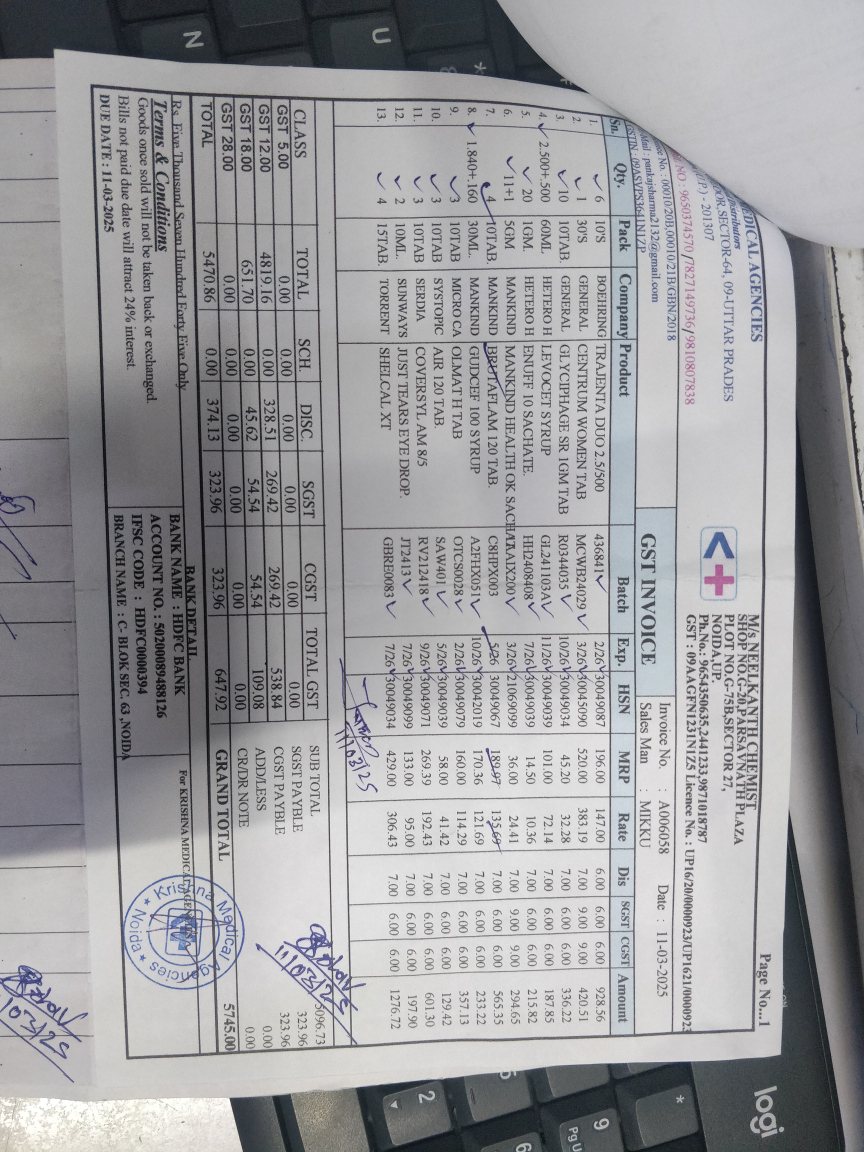 Page No...1
MEDICAL AGENCIES
Distributors
OOR,SECTOR-64, 09-UTTAR PRADES
(UP) - 201307
NO : 9650374570 /7827149736/9810807838
No. : 00010/20B,00010/21B/GBN/2018
Mail : pankajsharma2132@gmail.com
GSTIN : 09ASVPS3641N1ZP
M/s NEELKANTH CHEMIST
SHOP NO.G-20,PARSAVNATH PLAZA
PLOT NO.G-75B,SECTOR 27,
NOIDA,UP.
Ph.No.: 9654350635,2441233,9871018787
GST : 09AAGFN1231N1Z5 Licence No. : UP16/20/0000923/UP1621/0000923
GST INVOICE
Invoice No. : A006058 Date : 11-03-2025
Sales Man : MIKKU
Sn. Qty. Pack Company Product Batch Exp. HSN MRP Rate Dis SGST CGST Amount
1. 6 10'S BOEHRING TRAJENTA DUO 2.5/500 436841 2/26 30049087 196.00 147.00 6.00 6.00 6.00 928.56
2. 1 30'S GENERAL CENTRUM WOMEN TAB MCWB24029 3/26 30045090 520.00 383.19 7.00 9.00 9.00 420.51
3. 10 10TAB. GENERAL GLYCIPHAGE SR 1GM TAB R0344035 10/26 30049034 45.20 32.28 7.00 6.00 6.00 336.22
4. 2.500+.500 60ML HETERO H LEVOCET SYRUP GL241103A 11/26 30049039 101.00 72.14 7.00 6.00 6.00 187.85
5. 20 1GM. HETERO H ENUFF 10 SACHATE. HH2408408 7/26 30049039 14.50 10.36 7.00 6.00 6.00 215.82
6. 11+1 5GM MANKIND MANKIND HEALTH OK SACHA 3/26 21069099 36.00 24.41 7.00 9.00 9.00 294.65
7. 4 10TAB. MANKIND BRUTAFLAM 120 TAB. C8HPX003 5/26 30049067 189.97 135.69 7.00 6.00 6.00 565.35
8. 1.840+.160 30ML. MANKIND GUDCEF 100 SYRUP A2FHX051 10/26 30042019 170.36 121.69 7.00 6.00 6.00 233.22
9. 3 10TAB MICRO CA OLMAT H TAB OTCS0028 2/26 30049079 160.00 114.29 7.00 6.00 6.00 357.13
10. 3 10TAB SYSTOPIC AIR 120 TAB. SAW401 5/26 30049039 58.00 41.42 7.00 6.00 6.00 129.42
11. 3 10TAB SERDIA COVERSYL AM 8/5 RV212418 9/26 30049071 269.39 192.43 7.00 6.00 6.00 601.30
12. 2 10ML. SUNWAYS JUST TEARS EYE DROP. JT2413 7/26 30049099 133.00 95.00 7.00 6.00 6.00 197.90
13. 4 15TAB. TORRENT SHELCAL XT GBRE0083 7/26 30049034 429.00 306.43 7.00 6.00 6.00 1276.72
11/03/25
CLASS TOTAL SCH. DISC. SGST CGST TOTAL GST
GST 5.00 0.00 0.00 0.00 0.00 0.00 0.00
GST 12.00 4819.16 0.00 328.51 269.42 269.42 538.84
GST 18.00 651.70 0.00 45.62 54.54 54.54 109.08
GST 28.00 0.00 0.00 0.00 0.00 0.00 0.00
TOTAL 5470.86 0.00 374.13 323.96 323.96 647.92
SUB TOTAL 5096.73
SGST PAYBLE 323.96
CGST PAYBLE 323.96
ADD/LESS 0.00
CR/DR NOTE 0.00
GRAND TOTAL 5745.00
11/03/25
Rs. Five Thousand Seven Hundred Forty Five Only
Terms & Conditions
Goods once sold will not be taken back or exchanged.
Bills not paid due date will attract 24% interest.
DUE DATE : 11-03-2025
BANK DETAIL
BANK NAME : HDFC BANK
ACCOUNT NO. : 50200089488126
IFSC CODE : HDFC0000394
BRANCH NAME : C- BLOK SEC. 63 ,NOIDA
For KRISHNA MEDICAL AGENCIES
Krishna Medical Agencies
Noida
/03/25
logi
N
U
*
*
9
Pg U
6
5
2